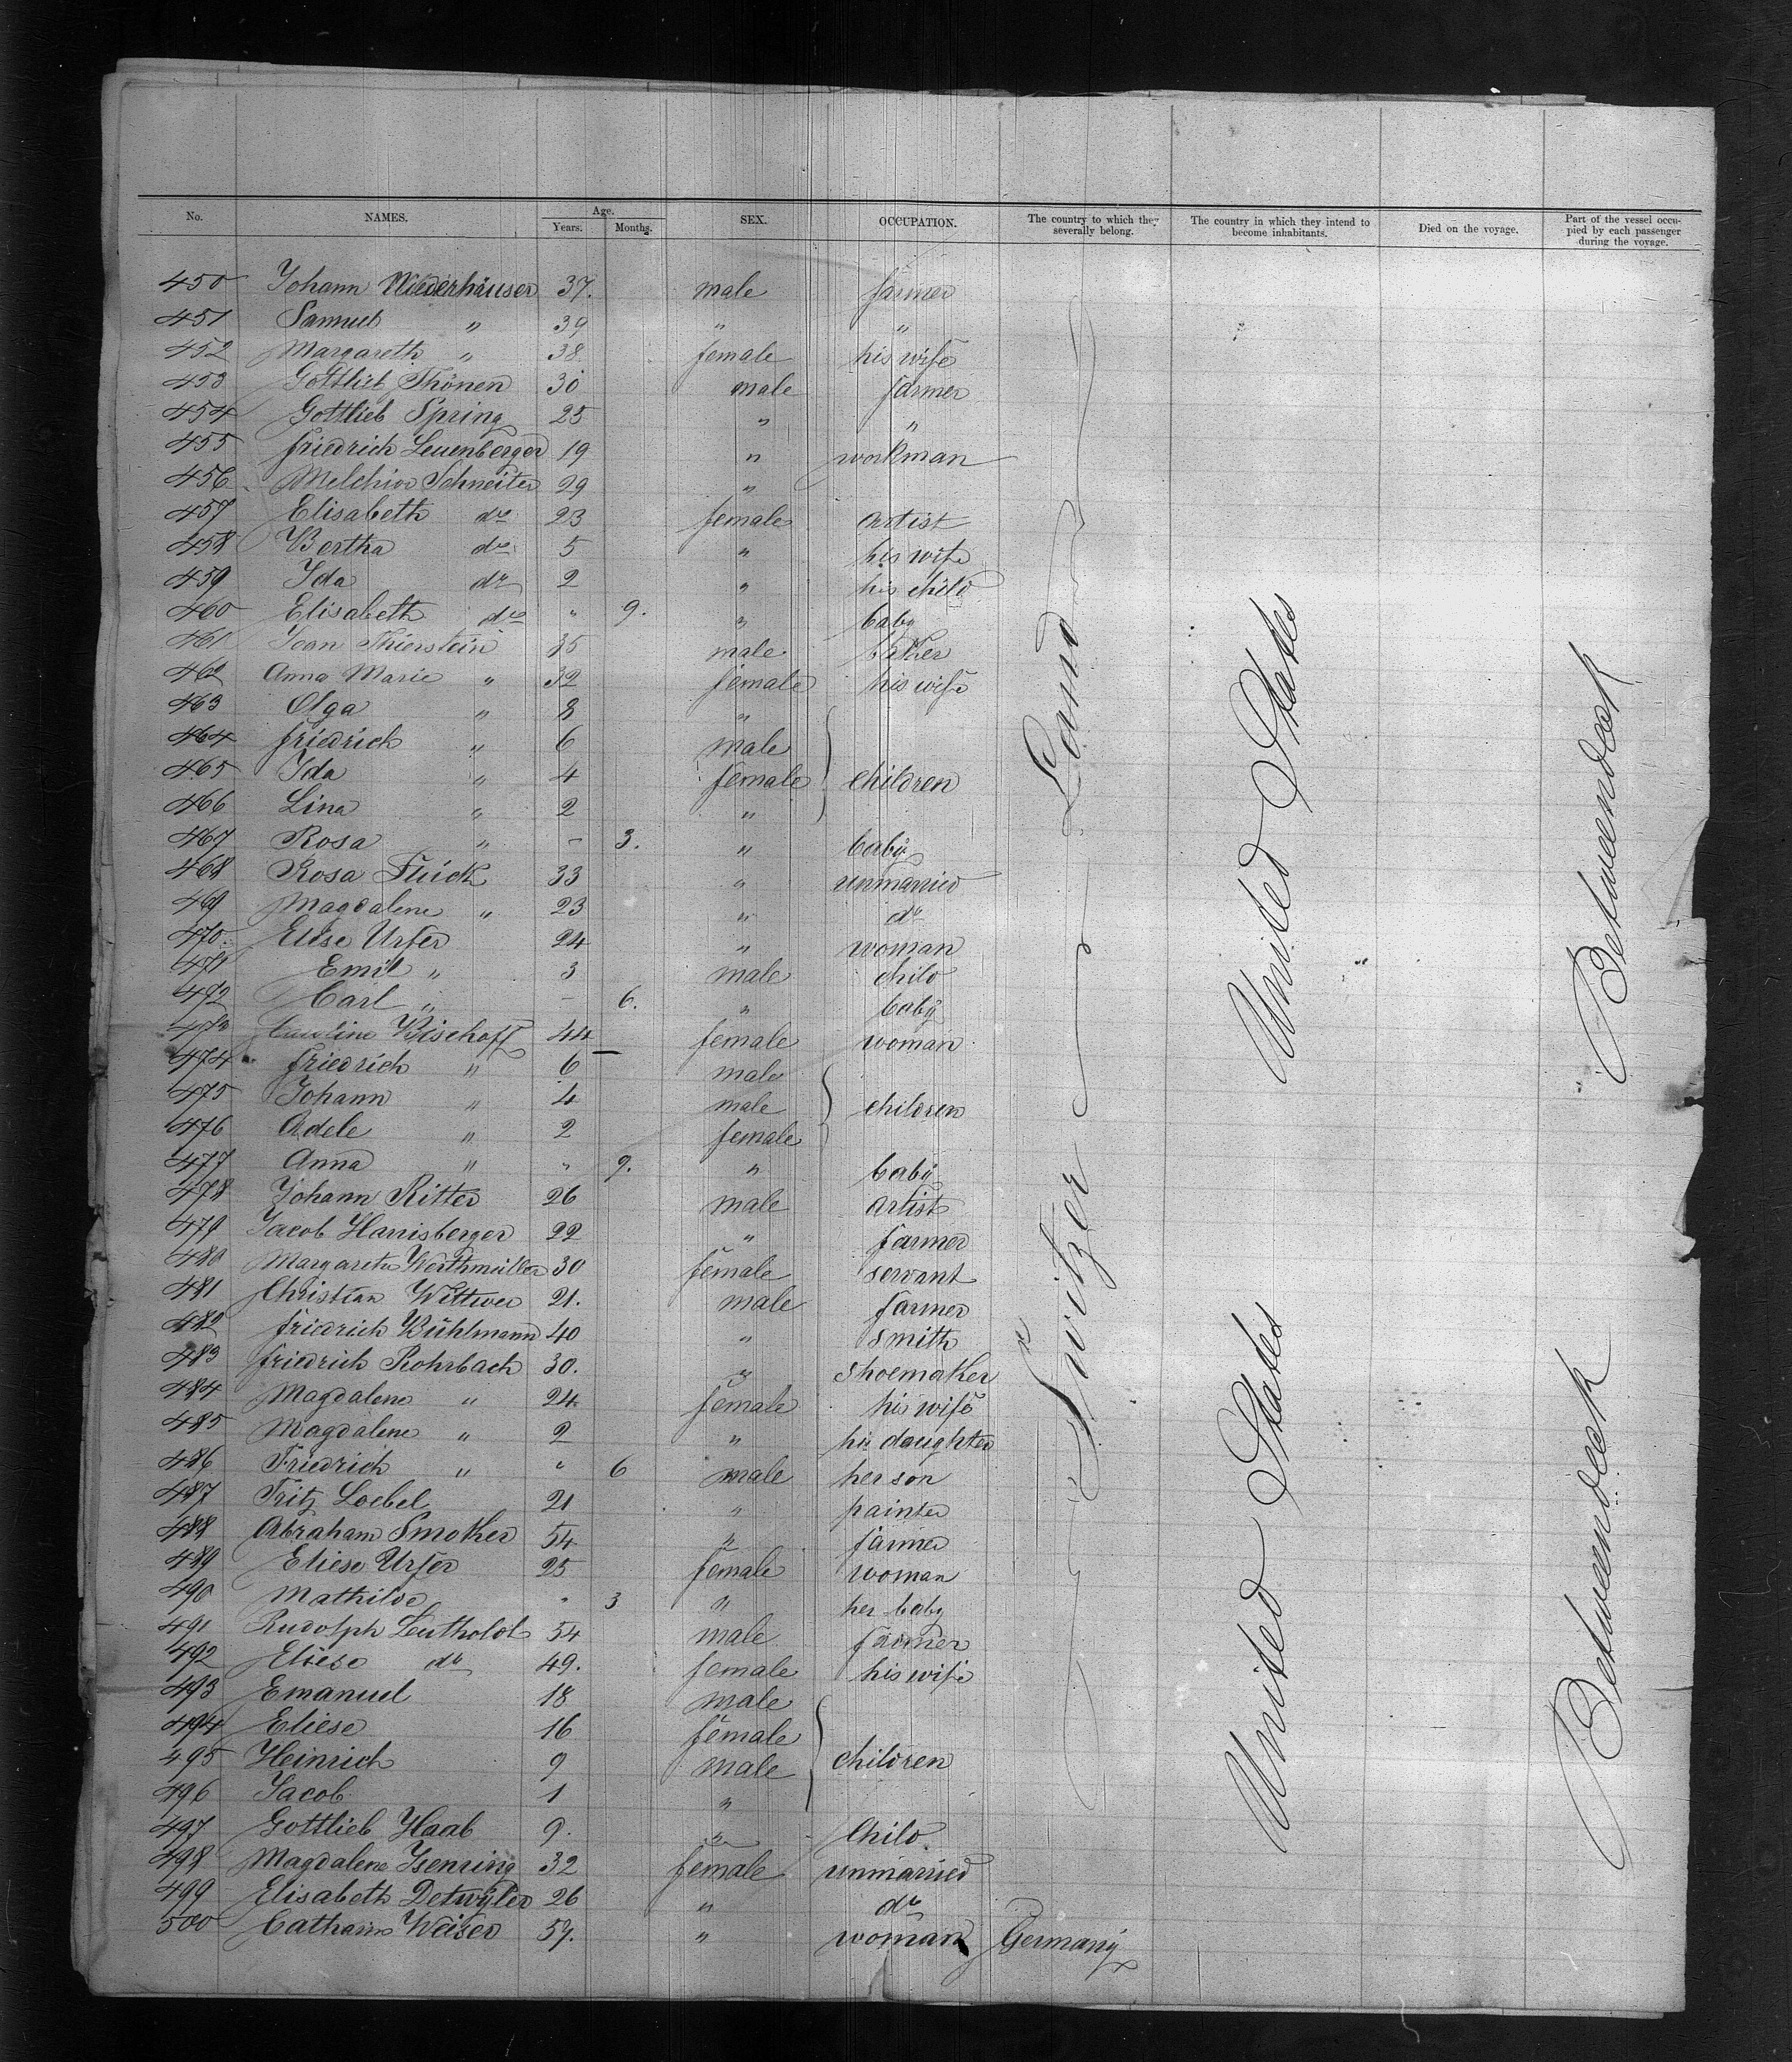 No. NAMES. Age. Years. Months. SEX. OCCUPATION. The country to which they severally belong. The country in which they intend to become inhabitants. Died on the voyage. Part of the vessel occupied by each passenger during the voyage.
450 Johann Niederhäuser 37. male farmer
451 Samuel " 39 " "
452 Margareth " 38 female his wife
453 Gottlieb Thönen 30 male farmer
454 Gottlieb Spring 25 " "
455 Friedrich Leuenberger 19 " workman
456 Melchior Schneiter 29 "
457 Elisabeth do 23 female artist
458 Bertha do 5 " his wife
459 Ida do 2 " his child
460 Elisabeth do " 9. " baby
461 Thierstein 35 male baker
462 Anna Marie " 32 female his wife
463 Olga " 8 "
464 Friedrich " 6 male
465 Ida " 4 female children
466 Lina " 2 "
467 Rosa " - 3. " baby
468 Rosa Flück 33 " unmarried
469 Magdalene " 23 " do
470. Elise Urfer 24 " woman
471 Emil " 3 male child
472 Carl " - 6. " baby
473 Caroline Bischoff 44 female woman
474 Friedrich " 6 male
475 Johann " 4 male children
476 Adele " 2 female
477 Anna " " 9. " baby
478 Johann Ritter 26 male artist
479 Jacob Hanisberger 22 " farmer
480 Margareta Werthmüller 30 female servant
481 Christian Wittwer 21. male farmer
482 Friedrich Bühlmann 40 " smith
483 Friedrich Rohrbach 30. " shoemaker
484 Magdalene " 24 female his wife
485 Magdalene " 2 " his daughter
486 Friedrich " " 6 male her son
487 Fritz Loebel 21 " painter
488 Abraham Smoker 54 " farmer
489 Eliese Urfer 25 female woman
490 Mathilde " 3 " her baby
491 Rudolph Leuthold 54 male farmer
492 Eliese do 49. female his wife
493 Emanuel 18 male
494 Eliese 16 female
495 Heinrich 9 male children
496 Jacob 1 "
497 Gottlieb Haab 9. " Child
498 Magdalene Isenring 32 female unmarried
499 Elisabeth Detwÿler 26 " do
500 Catharina Weiser 57. " woman Germany
Switzer Land
United States
United States
Betweendeck
Betweendeck